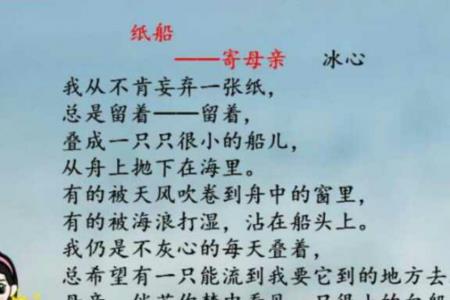 纸船
——寄母亲 冰心
我从不肯妄弃一张纸，
总是留着——留着，
叠成一只只很小的船儿，
从舟上抛下在海里。
有的被天风吹卷到舟中的窗里，
有的被海浪打湿，沾在船头上。
我仍是不灰心的每天叠着，
总希望有一只能流到我要它到的地方去